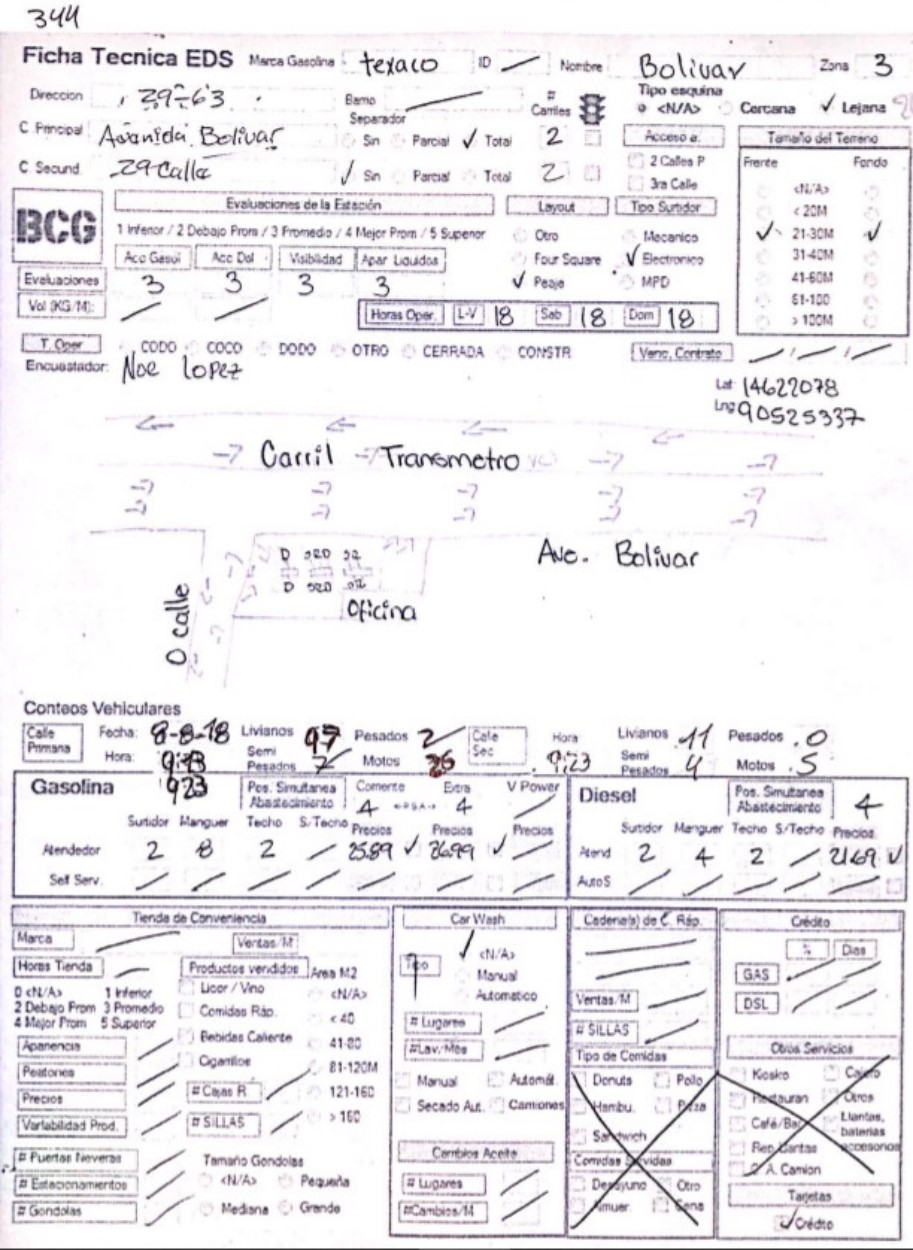 344
Ficha Tecnica EDS Marca Gasolina texaco ID Nombre Bolivar Zona 3
Direccion 29-63 Barrio # Carriles Tipo esquina <N/A> Cercana ✓ Lejana
Separador
C. Principal Avanida Bolivar Sin Parcial ✓ Total 2 Acceso a: Tamaño del Terreno
C. Secund. 29 Calle ✓ Sin Parcial Total 2 2 Calles P Frente Fondo
3ra Calle <N/A>
BCG Evaluaciones de la Estación Layout Tipo Surtidor < 20M
1 Inferior / 2 Debajo Prom / 3 Promedio / 4 Mejor Prom / 5 Superior Otro Mecanico ✓ 21-30M ✓
Acc Gasol Acc Dsl Visibilidad Apar Liquidos Four Square ✓ Electronico 31-40M
Evaluaciones 3 3 3 3 ✓ Peaje MPD 41-60M
Vol (KG/M): Horas Oper. L-V 18 Sab 18 Dom 18 61-100
> 100M
T. Oper CODO COCO DODO OTRO CERRADA CONSTR. Venc. Contrato / / /
Encuestador: Noe Lopez
Lat 14622078
Lng 90525337
Carril Transmetro
Ave. Bolivar
D D
Oficina
0 calle
Conteos Vehiculares
Calle Primaria Fecha: 8-8-18 Livianos 97 Pesados 2 Calle Sec Hora Livianos 11 Pesados 0
Hora: 9:23 Semi Pesados 7 Motos 9:23 Semi Pesados 4 Motos 5
923
Gasolina Pos. Simultanea Abastecimiento Corriente 4 Extra 4 V Power Diesel Pos. Simultanea Abastecimiento 4
Surtidor Manguer Techo S/Techo Precios Precios Precios Surtidor Manguer Techo S/Techo Precios
Atendedor 2 8 2 25.89 ✓ 26.99 ✓ Atend 2 4 2 21.69 ✓
Self Serv. AutoS
Tienda de Conveniencia Car Wash Cadena(s) de C. Ráp. Crédito
Marca Ventas/M ✓ <N/A> % Dias
Horas Tienda Productos vendidos Area M2 Tipo Manual GAS
0 <N/A> 1 Inferior Licor / Vino <N/A> Automatico Ventas/M DSL
2 Debajo Prom 3 Promedio Comidas Ráp. < 40 # Lugares # SILLAS
4 Mejor Prom 5 Superior Bebidas Caliente 41-80 #Lav./Mes Tipo de Comidas Otros Servicios
Apariencia Cigarrillos 81-120M Manual Automát. Donuts Pollo Kosko Cajero
Peatones # Cajas R 121-160 Secado Aut. Camiones Hambu. Pizza Restauran Otros
Precios # SILLAS > 160 Sandwich Café/Bar Llantas, baterias accesorios
Variabilidad Prod. Cambios Aceite Comidas Servidas Rep. Llantas
# Puertas Neveras Tamaño Gondolas # Lugares Desayuno Otro C. A. Camion
# Estacionamientos <N/A> Pequeña #Cambios/M Almuer. Cena Tarjetas
# Gondolas Mediana Grande ✓ Crédito